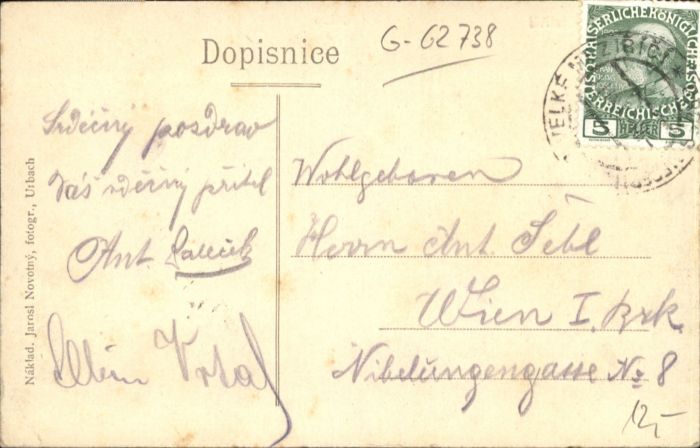 Dopisnice
G-62738
KAISERLICHE KÖNIGLICHE
ÖSTERREICHISCHE POST
5 HELLER 5
VELKÉ MEZIŘÍČÍ
Srdečný pozdrav
Váš vděčný přítel
Ant.
Vrtal
Wohlgeboren
Herrn Ant. Sebl
Wien I. Bzk.
Nibelungengasse No 8
12,-
Náklad. Jarosl Novotný, fotogr., Urbach